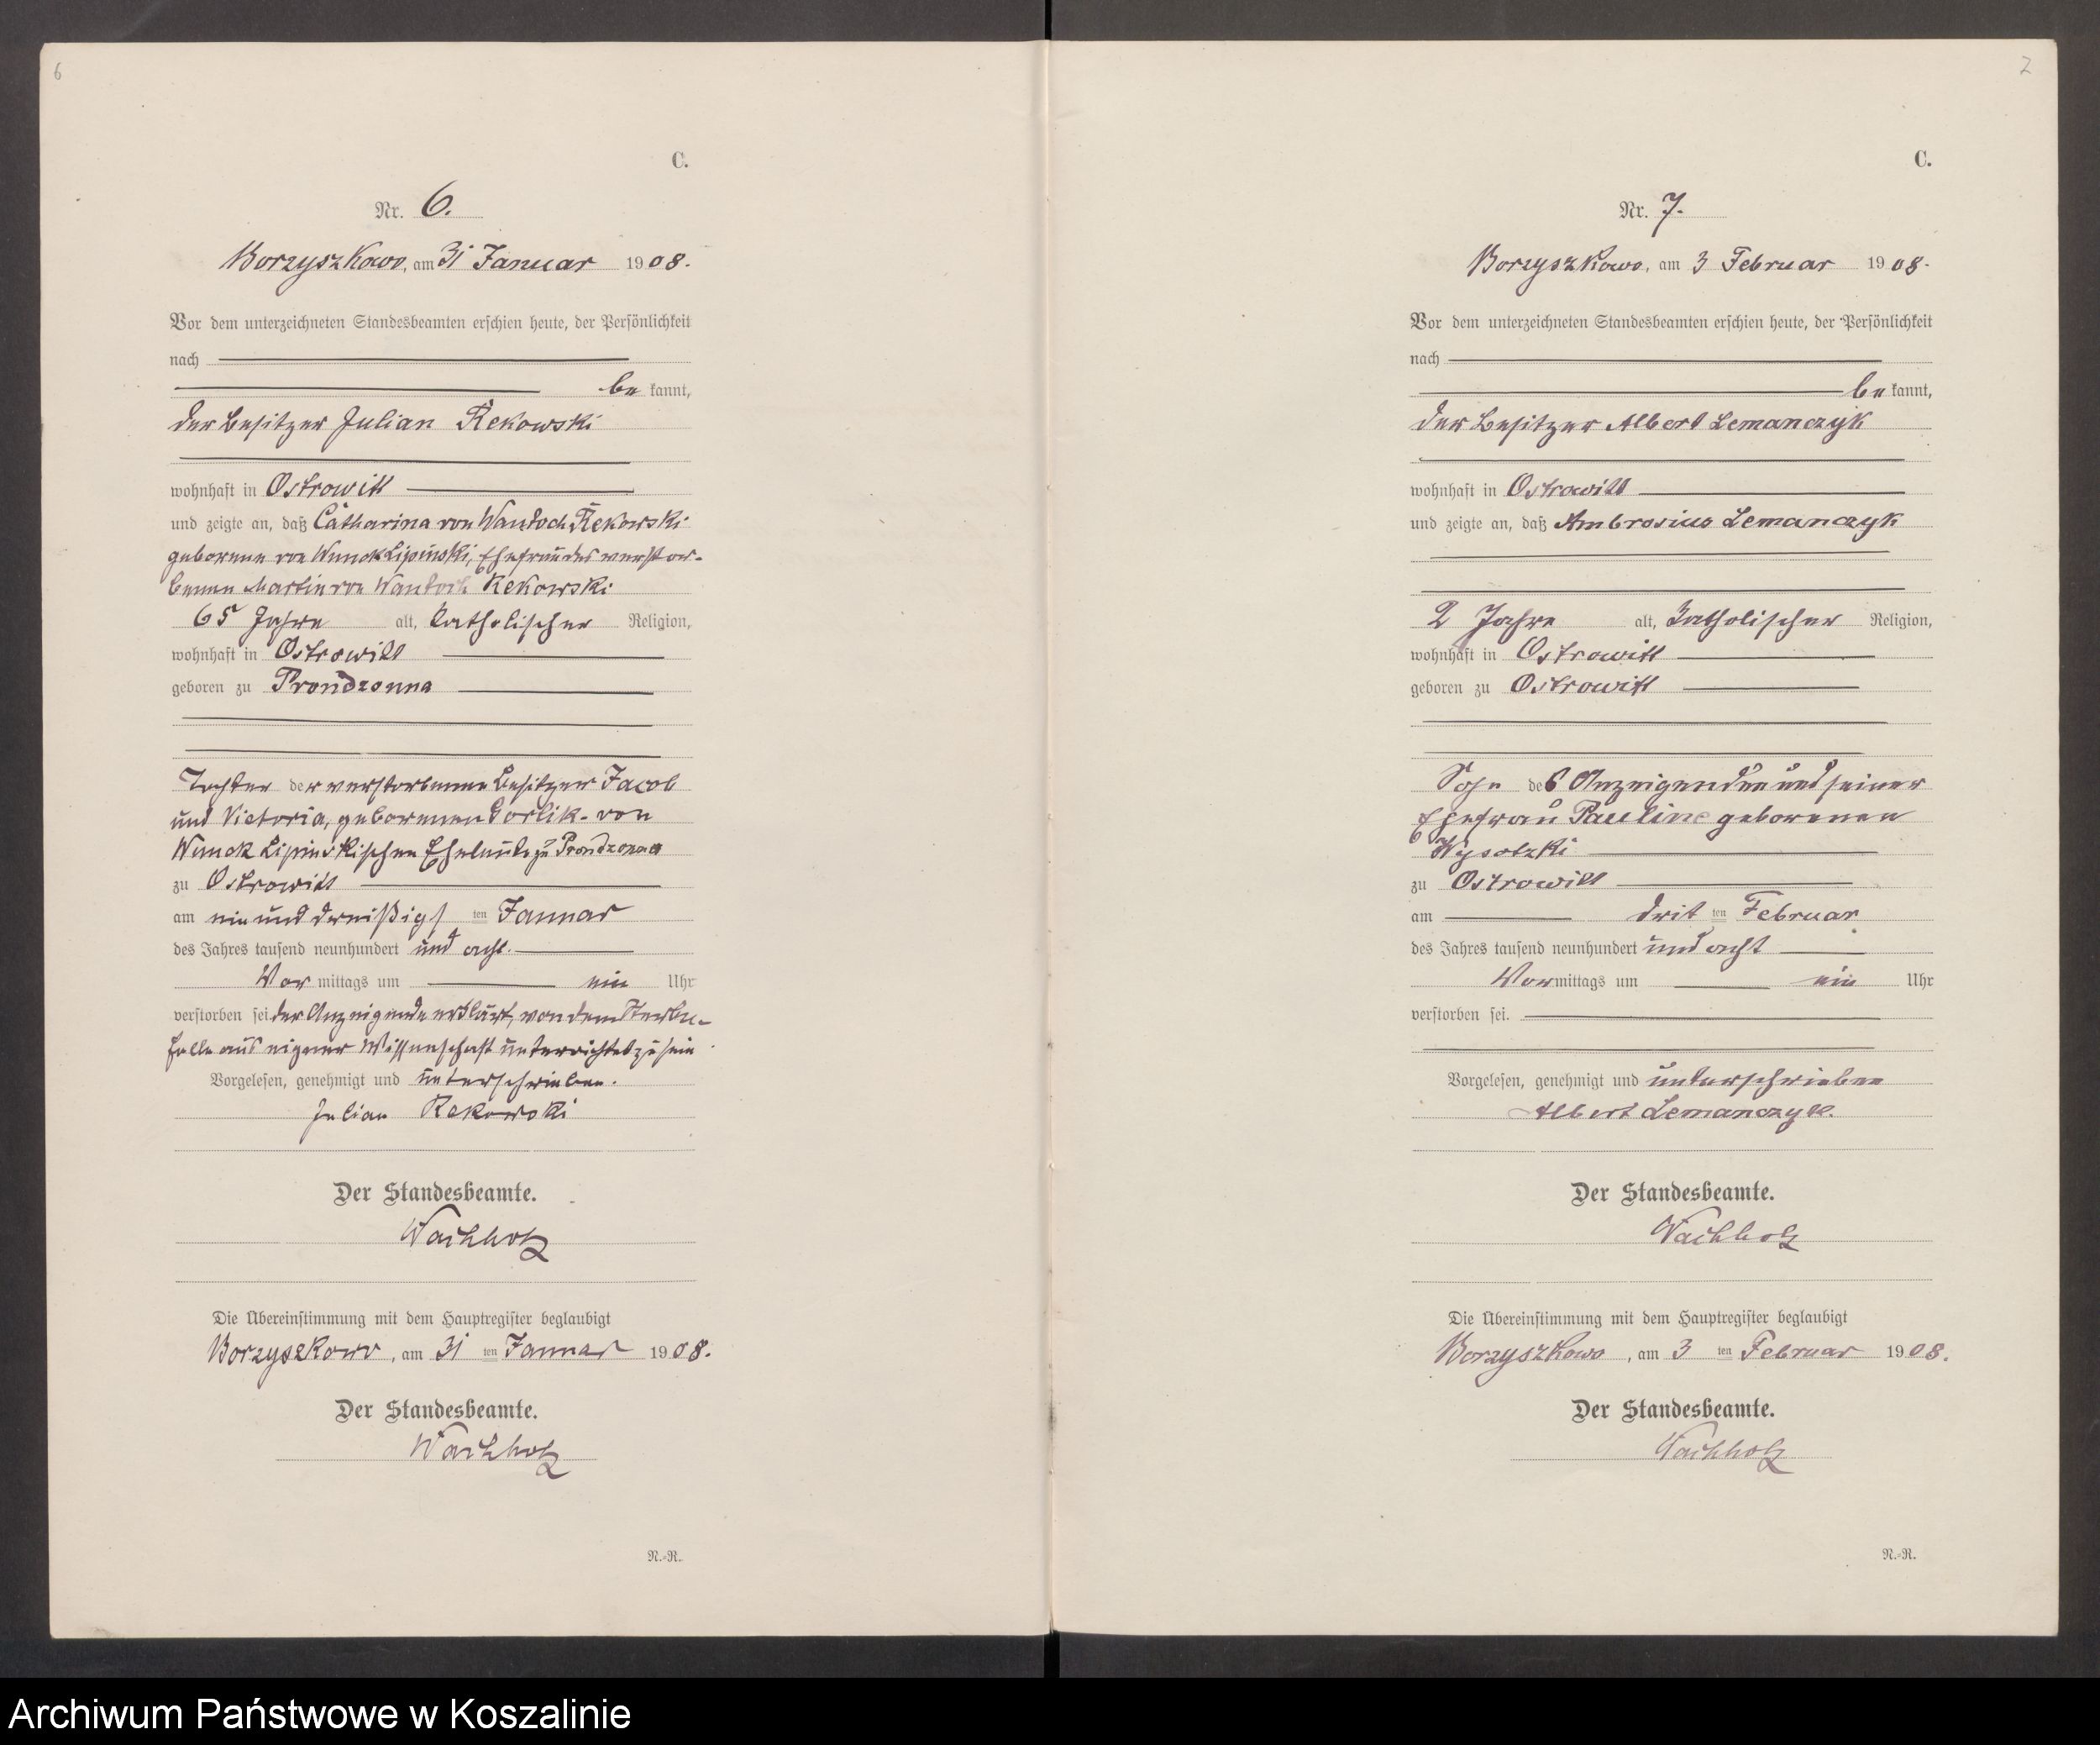 6
C.
Nr. 6.
Borzyszkowo, am 31 Januar 1908.
Vor dem unterzeichneten Standesbeamten erschien heute, der Persönlichkeit
nach
be kannt,
der Besitzer Julian Rekowski
wohnhaft in Ostrowitt
und zeigte an, daß Catharina von Wantoch Rekowski
geborene von Wnuck Lipinski, Ehefrau des verstor-
benen Martin von Wantoch Rekowski
65 Jahre alt, katholischer Religion,
wohnhaft in Ostrowitt
geboren zu Prondzonna
Tochter der verstorbenen Besitzer Jacob
und Victoria, geborenen Gorlik - von
Wnuck Lipinskischen Eheleute zu Prondzonna
zu Ostrowitt
am ein und dreißigs ten Januar
des Jahres tausend neunhundert und acht.
Vor mittags um ein Uhr
verstorben sei. der Anzeigende erklärt, von dem Sterbe-
falle aus eigner Wissenschaft unterrichtet zu sein
Vorgelesen, genehmigt und unterschrieben.
Julian Rekowski
Der Standesbeamte.
Wachholz
Die Übereinstimmung mit dem Hauptregister beglaubigt
Borzyszkowo, am 31 ten Januar 1908.
Der Standesbeamte.
Wachholz
N.-R.
7
C.
Nr. 7.
Borzyszkowo, am 3 Februar 1908.
Vor dem unterzeichneten Standesbeamten erschien heute, der Persönlichkeit
nach
be kannt,
der Besitzer Albert Lemanczyk
wohnhaft in Ostrowitt
und zeigte an, daß Ambrosius Lemanczyk
2 Jahre alt, katholischer Religion,
wohnhaft in Ostrowitt
geboren zu Ostrowitt
Sohn des Anzeigenden und seiner
Ehefrau Pauline geborenen
Wysotzki
zu Ostrowitt
am drit ten Februar
des Jahres tausend neunhundert und acht
Vormittags um ein Uhr
verstorben sei.
Vorgelesen, genehmigt und unterschrieben
Albert Lemanczyk.
Der Standesbeamte.
Wachholz
Die Übereinstimmung mit dem Hauptregister beglaubigt
Borzyszkowo, am 3 ten Februar 1908.
Der Standesbeamte.
Wachholz
N.-R.
Archiwum Państwowe w Koszalinie